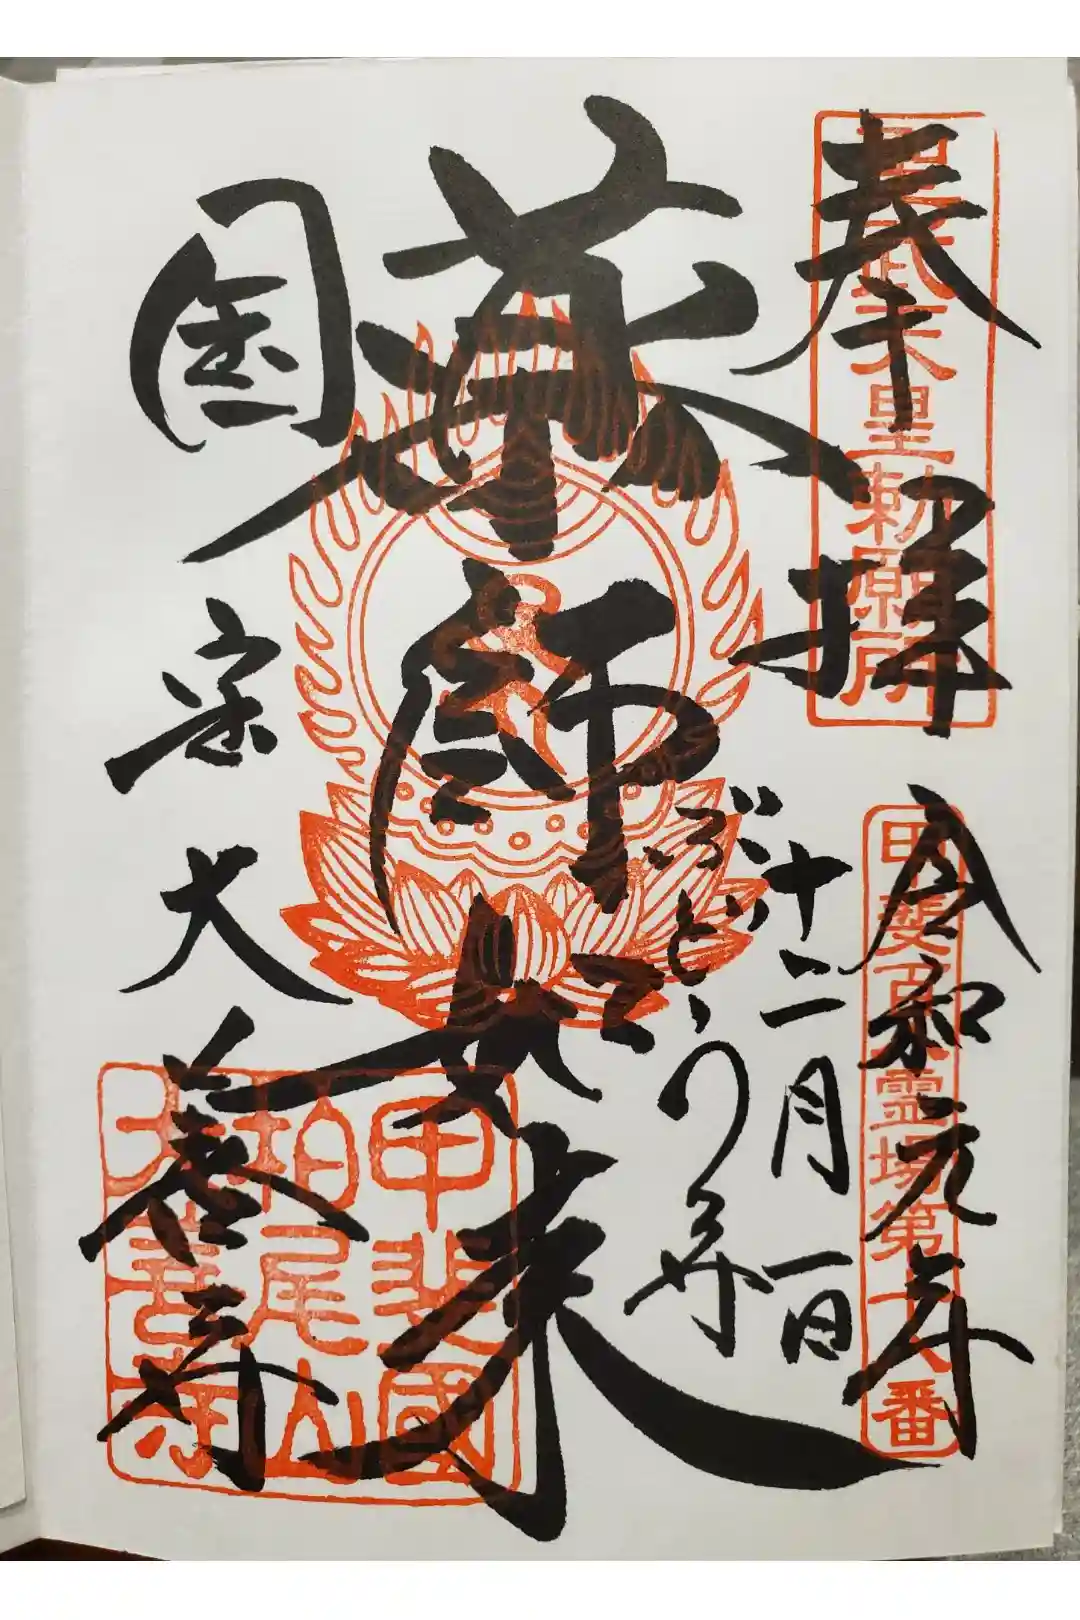 奉拝
聖武天皇勅願所
令和元年
甲斐百八霊場第十八番
十二月一日
ぶどう寺
薬師如来
国宝
大善寺
甲斐國
柏尾山
大善寺